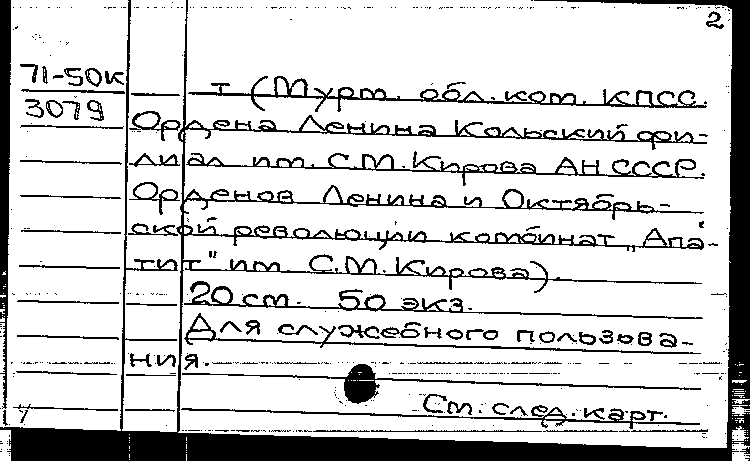 2
71-50к т (Мурм. обл. ком. КПСС.
3079 Ордена Ленина Кольский фи-
лиал им. С.М. Кирова АН СССР.
Орденов Ленина и Октябрь-
ской революции комбинат „Апа-
тит" им. С.М. Кирова).
20 см. 50 экз.
Для служебного пользова-
ния.
См. след. карт.